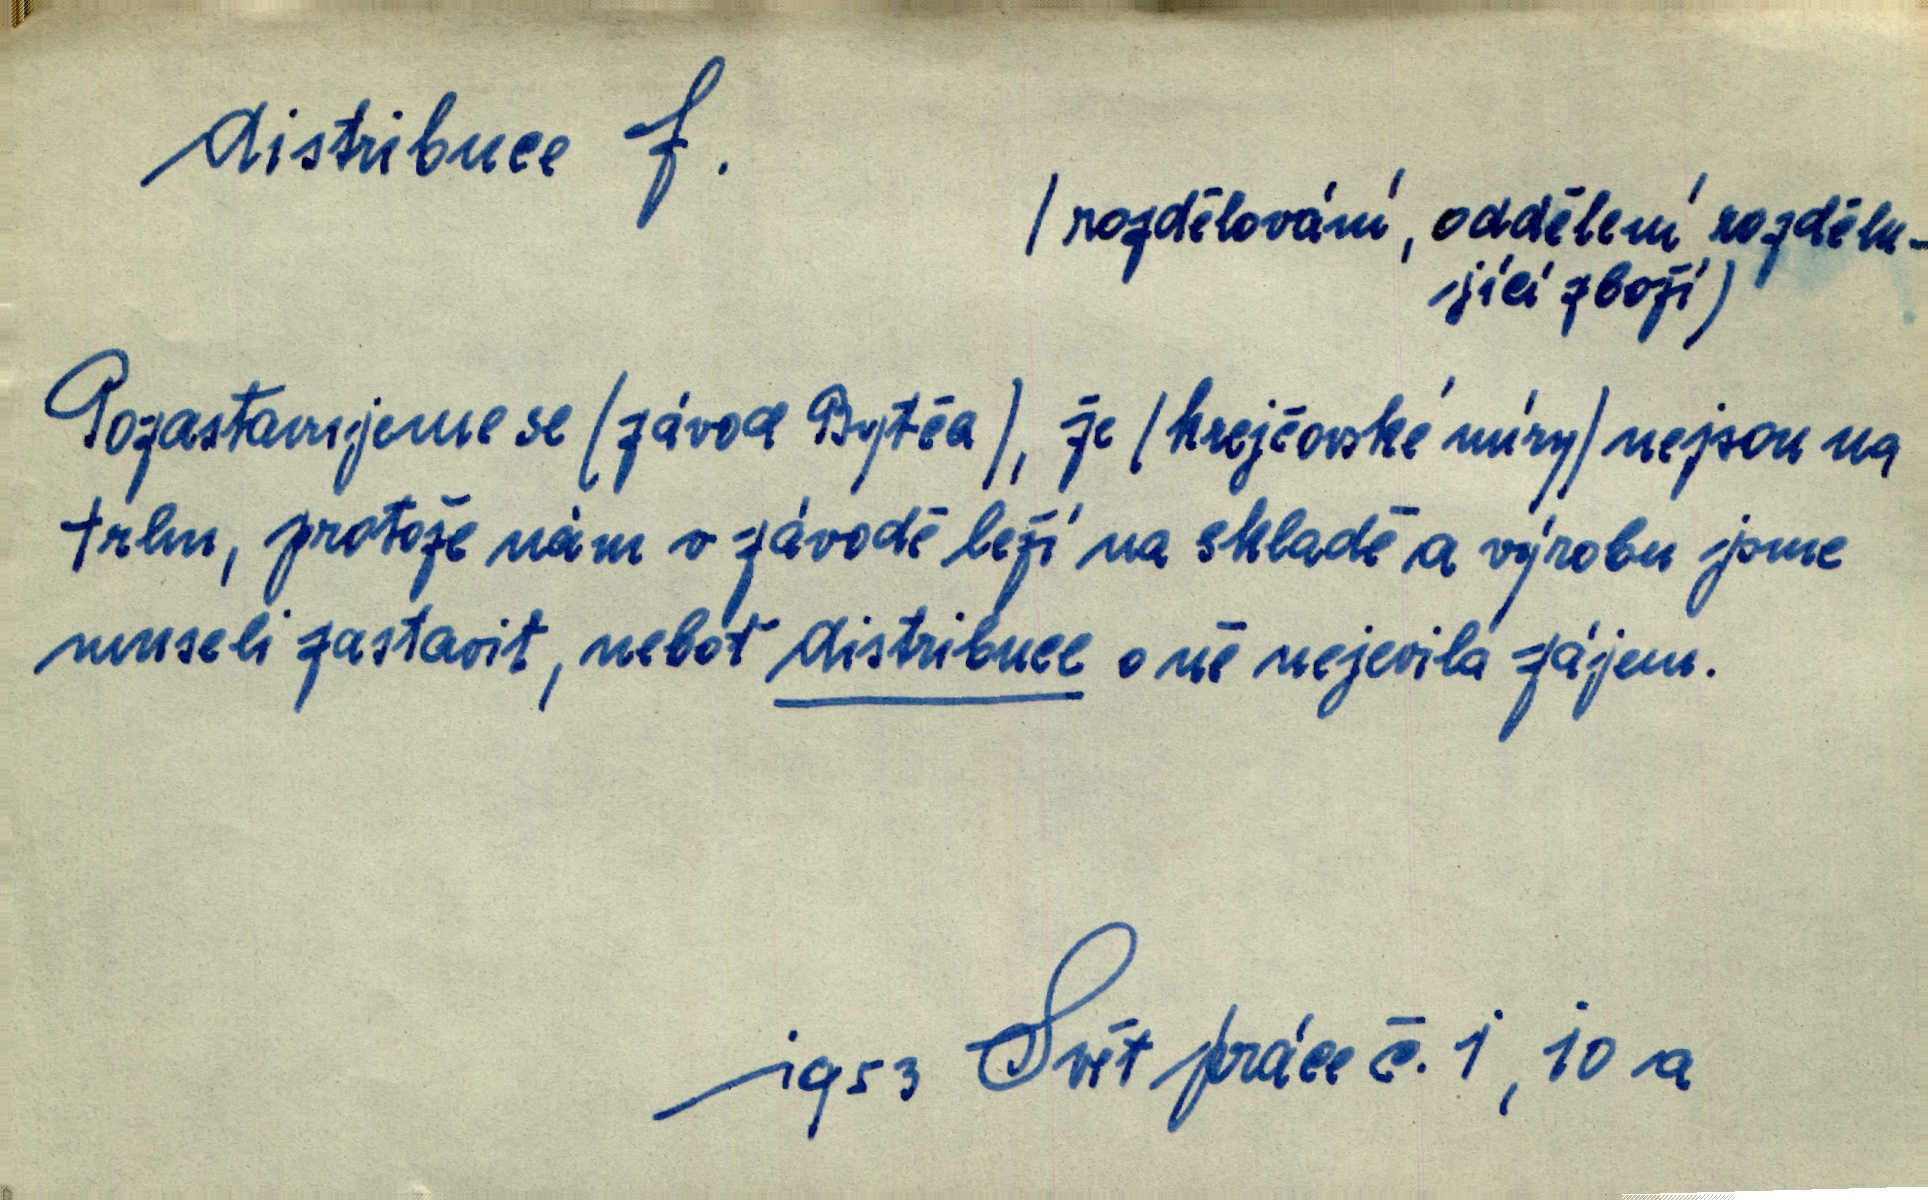 distribuce f.
(rozdělování, oddělení rozdělu-
jící zboží)
Pozastavujeme se (závod Bytča), že (krejčovské míry) nejsou na
trhu, protože nám v závodě leží na skladě a výrobu jsme
museli zastavit, neboť distribuce o ně nejevila zájem.
1953 Svět práce č. 1, 10 a